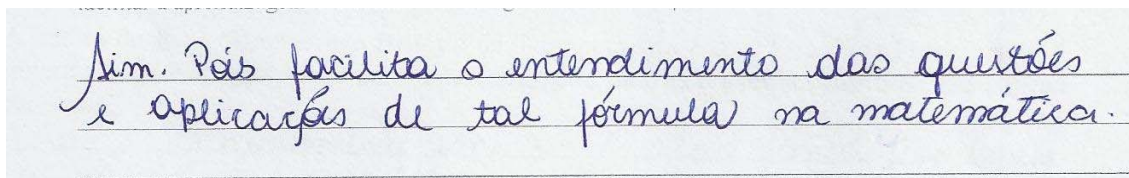 Sim. Pois facilita o entendimento das questões
e aplicações de tal fórmula na matemática.